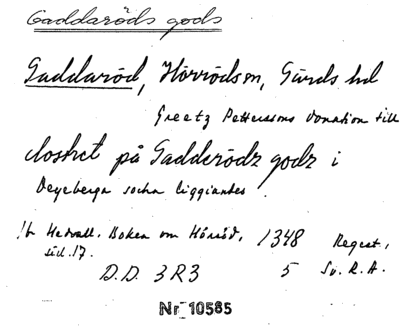 Gaddaröds gods
Gaddaröd, Hörrödsn, Gärds hd
Greetz Petterssons donation till
clostret på Gadderödz godz i
Degeberga sochn liggiandes.
Ib Hedvall, Boken om Hörröd, 1348 Regest,
sid. 17.
D.D. 3R3 5 Sv. R.A.
Nr 10585